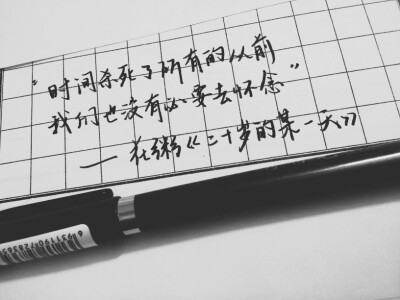 “时间杀死了所有的从前
我们也没有必要去怀念”
—花粥《二十岁的某一天》